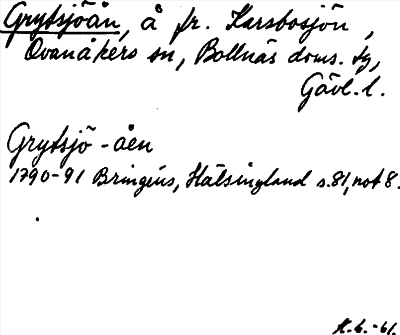 Grytsjöån, å fr. Karsbosjön,
Ovanåkers sn, Bollnäs doms. tg,
Gävl. l.
Grytsjö-åen
1790-91 Bringéus, Hälsingland s. 81, not 8.
K.G.-61.